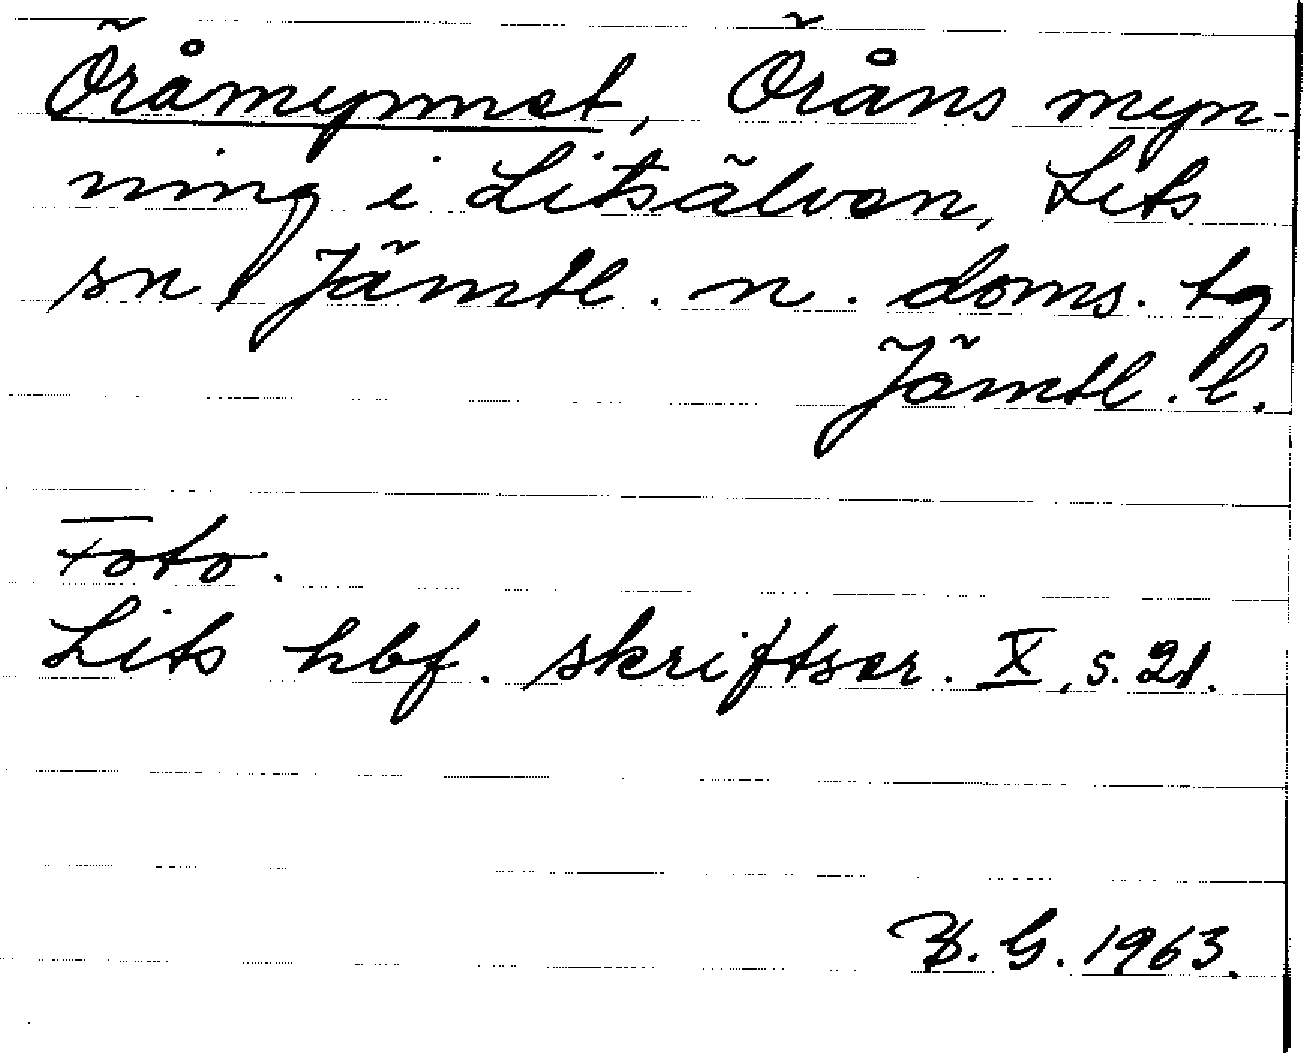 Öråmynnet, Öråns myn-
ning i Litsälven, Lits
sn, Jämtl. n. doms. tg,
Jämtl. l.
Foto.
Lits hbf. skriftser. X, s. 21.
B. G. 1963.